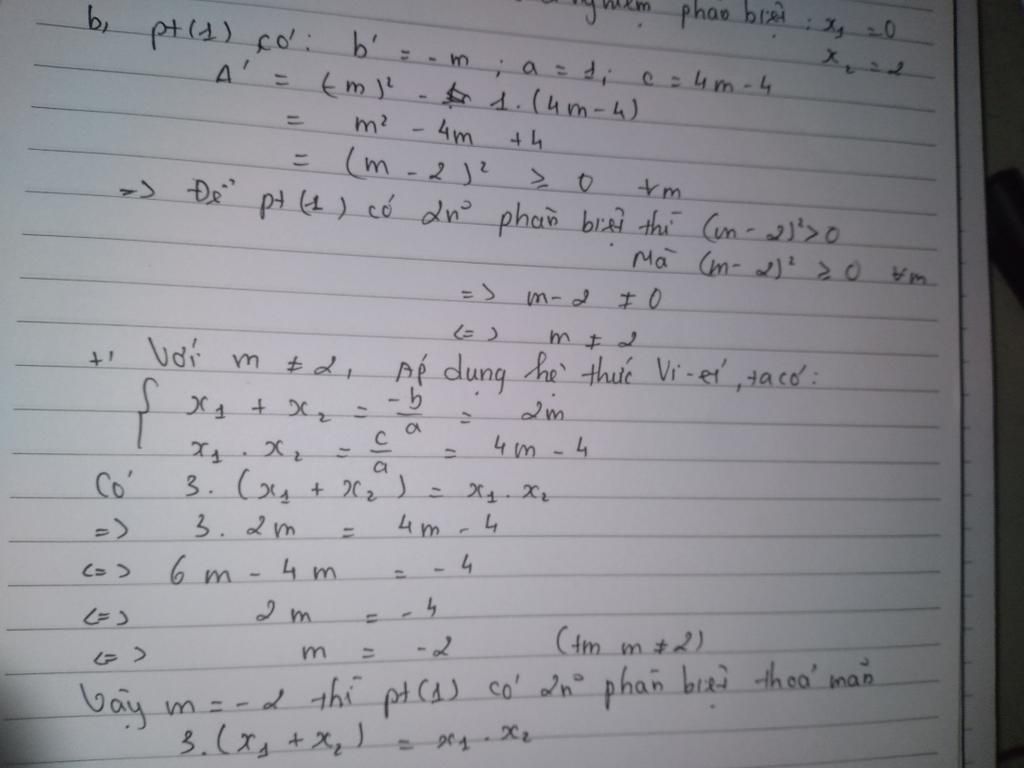 nghiệm phân biệt : x₁ = 0
x₂ = 2
b, pt(1) có : b' = -m ; a = 1; c = 4m - 4
Δ' = (-m)² - 1.(4m-4)
= m² - 4m + 4
= (m - 2)² ≥ 0 ∀m
=> Để pt(1) có 2n⁰ phân biệt thì (m-2)²>0
Mà (m-2)² ≥ 0 ∀m
=> m-2 ≠ 0
<=> m ≠ 2
+, Với m ≠ 2, Áp dụng hệ thức Vi-ét, ta có:
{ x₁ + x₂ = -b/a = 2m
x₁ . x₂ = c/a = 4m - 4
Có 3. (x₁ + x₂) = x₁ . x₂
=> 3. 2m = 4m - 4
<=> 6m - 4m = -4
<=> 2m = -4
<=> m = -2 (tm m ≠ 2)
Vậy m = -2 thì pt(1) có 2n⁰ phân biệt thoả mãn
3.(x₁ + x₂) = x₁ . x₂